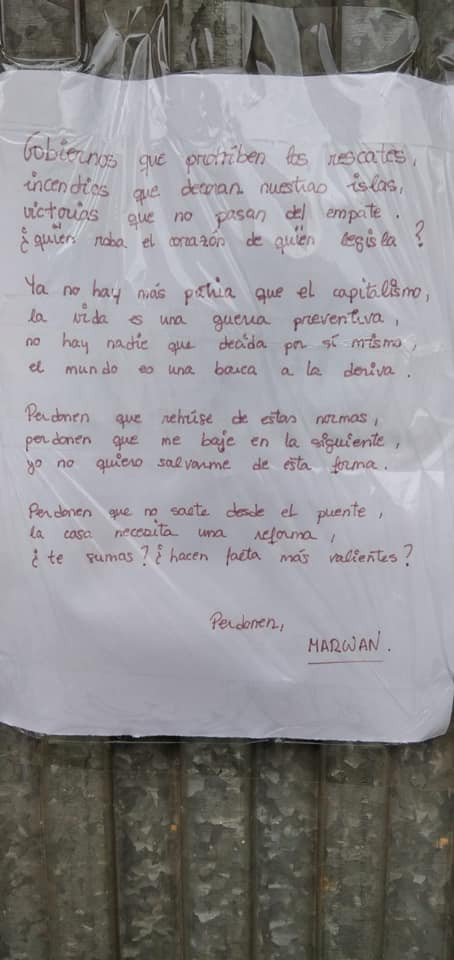 Gobiernos que prohíben los rescates,
incendios que decoran nuestras islas,
victorias que no pasan del empate.
¿quién roba el corazón de quién legisla?
Ya no hay más patria que el capitalismo,
la vida es una guerra preventiva,
no hay nadie que decida por sí mismo,
el mundo es una barca a la deriva.
Perdonen que rehúse de estas normas,
perdonen que me baje en la siguiente,
yo no quiero salvarme de esta forma.
Perdonen que no salte desde el puente,
la casa necesita una reforma,
¿te sumas? ¿hacen falta más valientes?
Perdonen,
MARWAN.